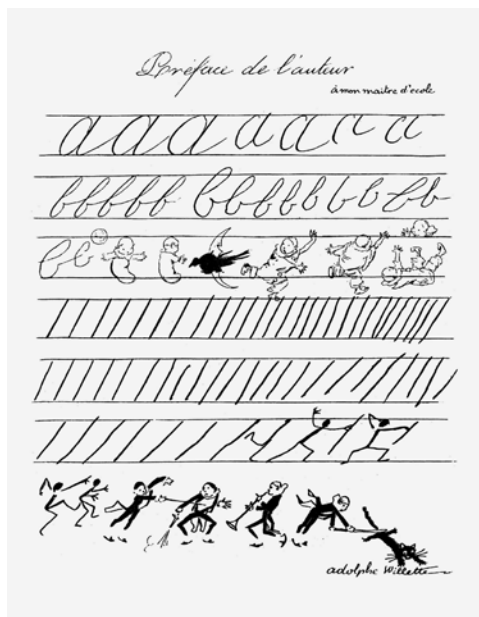 Préface de l'auteur
à mon maître d'école
a a a a a a a
b b b b b b b b b b b b b b
b b
adolphe Willette